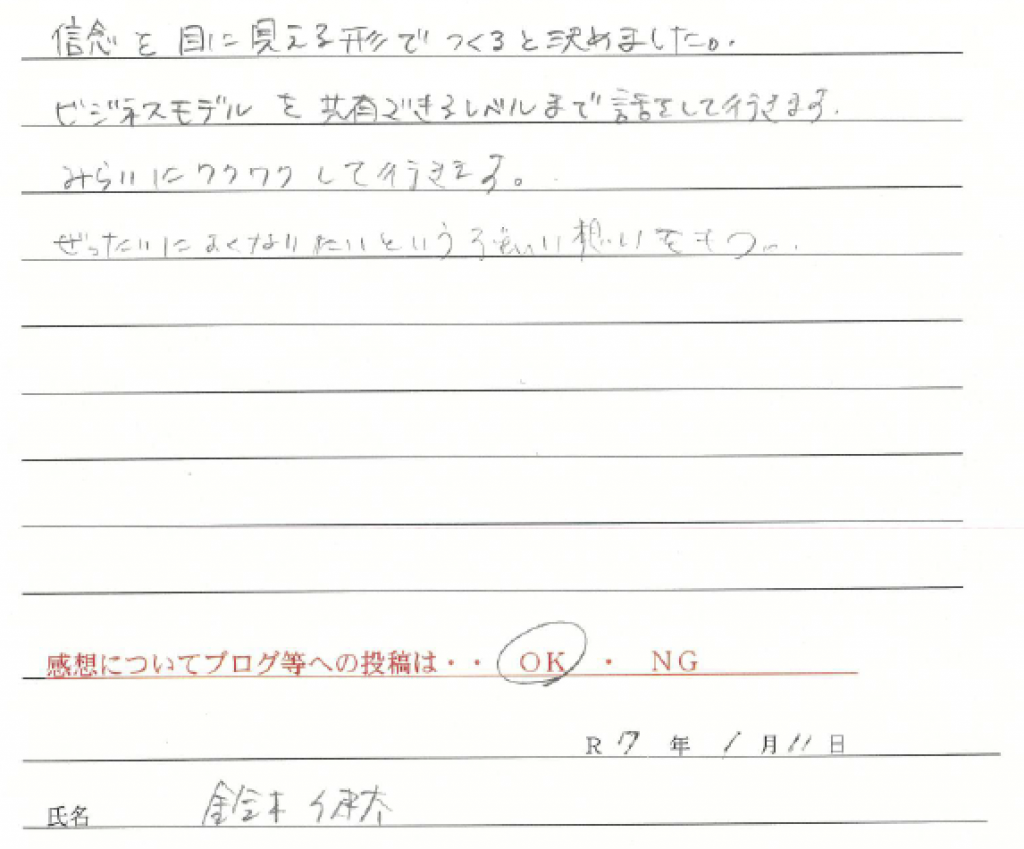 信念を目に見える形でつくると決めました。
ビジネスモデルを共有できるレベルまで話をして行きます。
みらいにワクワクして行きます。
ぜったいによくなりたいという強い想いをもつ。
感想についてブログ等への投稿は・・ OK ・ NG
R7年1月11日
氏名 鈴木